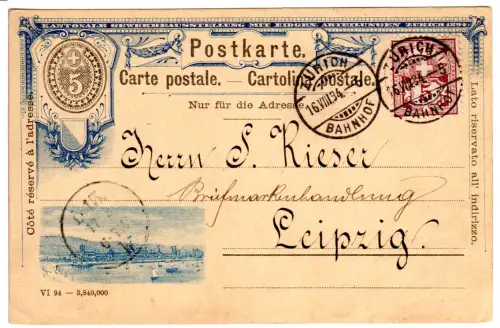 KANTONALE GEWERBEAUSSTELLUNG MIT EIDGEN. ABTEILUNGEN ZÜRICH 1894
5
Postkarte.
Carte postale. — Cartolina postale.
Nur für die Adresse.
Côté réservé à l'adresse.
Lato riservato all' indirizzo.
ZÜRICH
16.VIII.94.
BAHNHOF
ZÜRICH
16.VIII.94.
BAHNHOF
Herrn S. Kieser
Briefmarkenhandlung
Leipzig.
VI 94 — 3,840,000